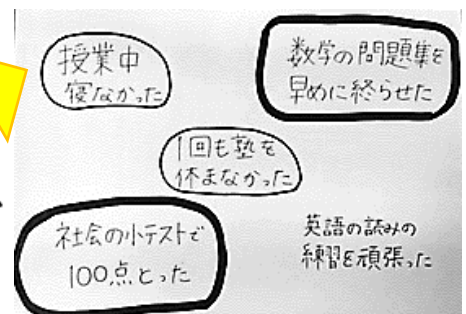 授業中
寝なかった
数学の問題集を
早めに終らせた
1回も塾を
休まなかった
社会の小テストで
100点とった
英語の読みの
練習を頑張った